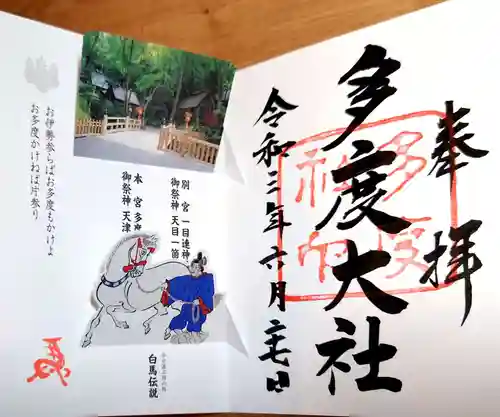 奉拝
多度大社
多度
神印
令和三年六月二七日
別宮 一目連神
御祭神 天目一箇
本宮 多度
御祭神 天津
白馬伝説
お伊勢参らばお多度もかけよ
お多度かけねば片参り
馬